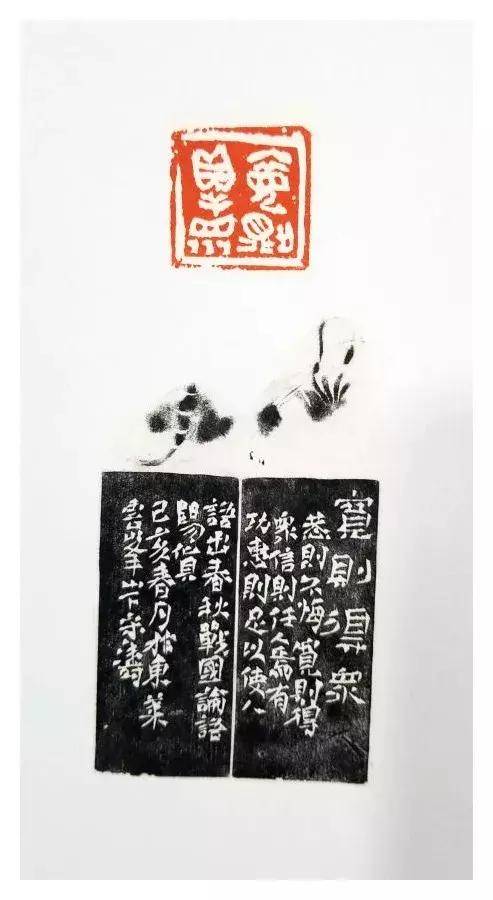 寬則得眾
寬則得眾
恭則不悔寬則得
眾信則任人焉有
功惠則足以使人
語出春秋戰國論語
陽貨
己亥春月於東萊
雲峯山下宗濤